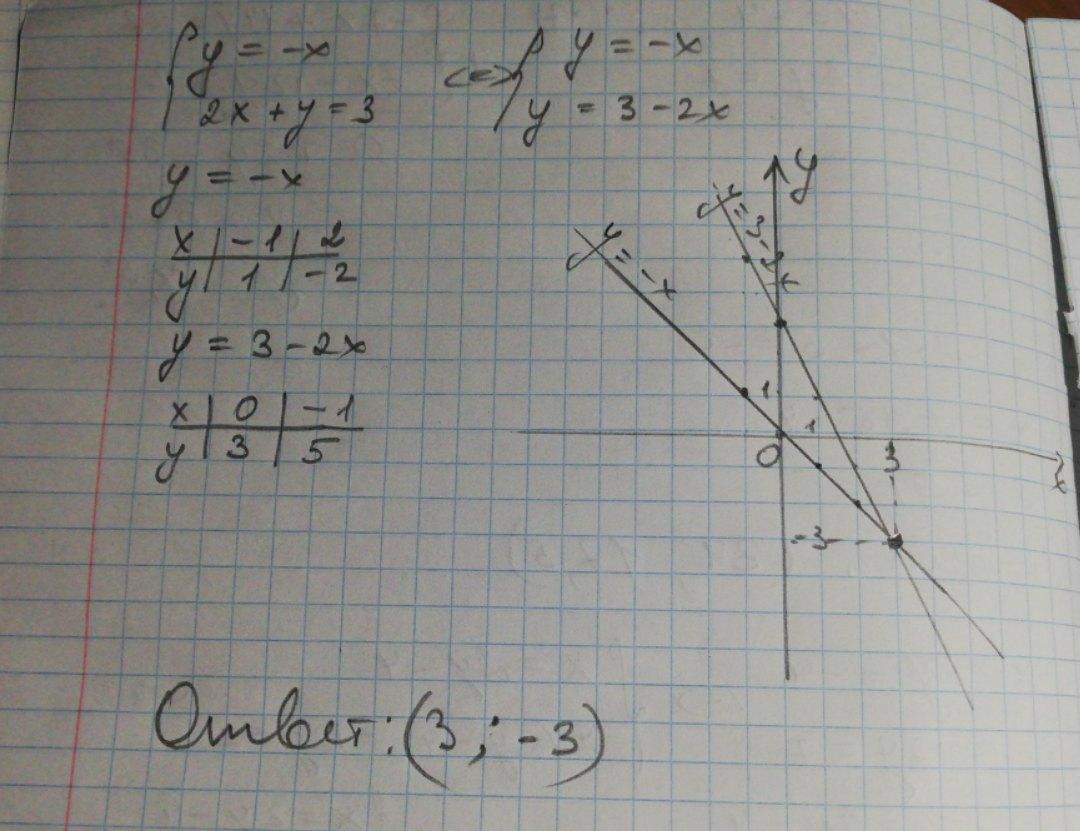 { y = -x <=> { y = -x
2x + y = 3 y = 3 - 2x
y = -x
x | -1 | 2
y | 1 | -2
y = 3 - 2x
x | 0 | -1
y | 3 | 5
y
y = 3 - 2x
y = -x
1
1
0
3
x
-3
Ответ: (3 ; -3)